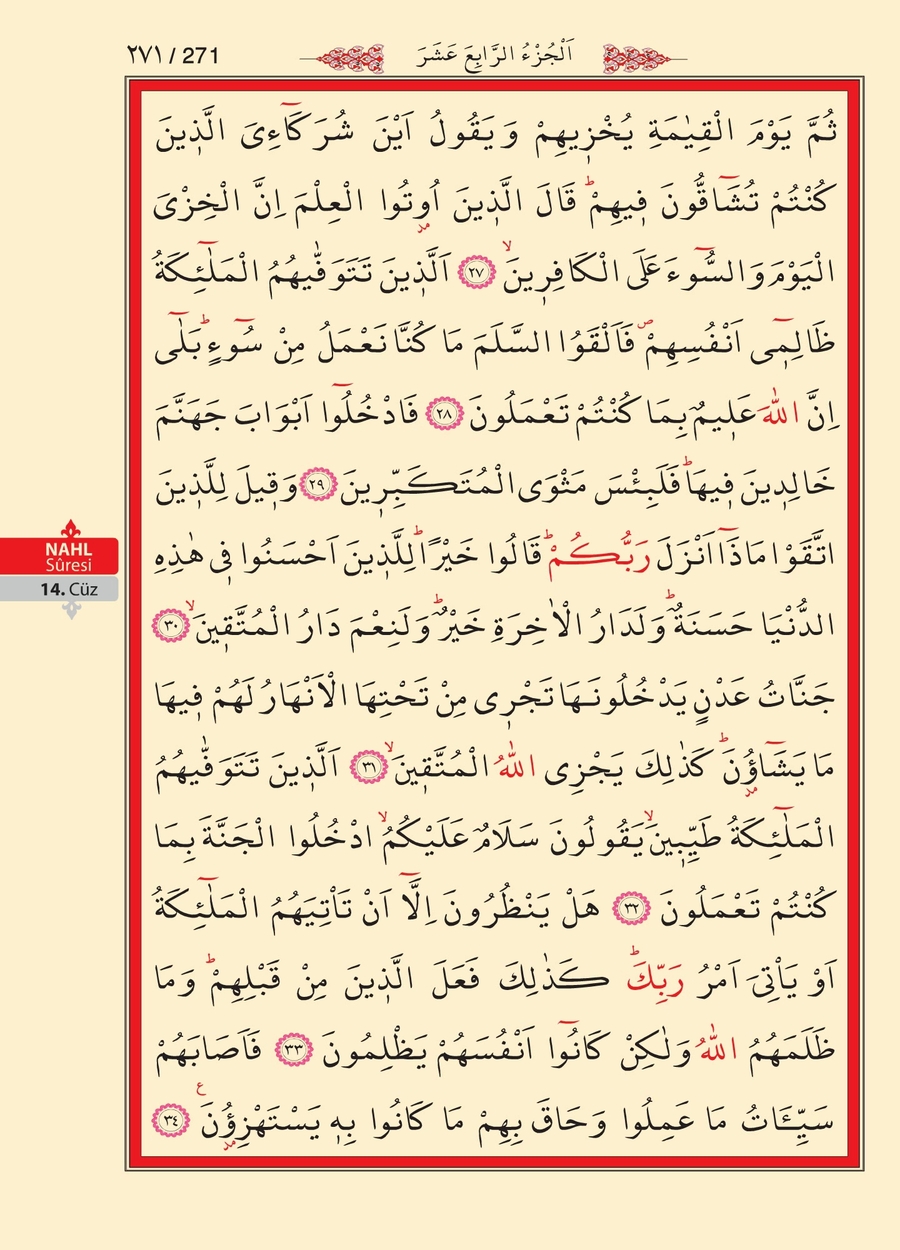 ٢٧١ / 271
اَلْجُزْءُ الرَّابِعَ عَشَرَ
ثُمَّ يَوْمَ الْقِيٰمَةِ يُخْزِيهِمْ وَيَقُولُ اَيْنَ شُرَكَٓاءِىَ الَّذ۪ينَ
كُنْتُمْ تُشَٓاقُّونَ ف۪يهِمْۜ قَالَ الَّذ۪ينَ اُو۫تُوا الْعِلْمَ اِنَّ الْخِزْىَ
الْيَوْمَ وَالسُّٓوءَ عَلَى الْكَافِر۪ينَۙ ﴿٢٧﴾ اَلَّذ۪ينَ تَتَوَفّٰيهُمُ الْمَلٰٓئِكَةُ
ظَالِم۪ٓى اَنْفُسِهِمْۖ فَاَلْقَوُا السَّلَمَ مَا كُنَّا نَعْمَلُ مِنْ سُٓوءٍۜ بَلٰٓى
اِنَّ اللّٰهَ عَل۪يمٌ بِمَا كُنْتُمْ تَعْمَلُونَ ﴿٢٨﴾ فَادْخُلُٓوا اَبْوَابَ جَهَنَّمَ
خَالِد۪ينَ ف۪يهَاۜ فَلَبِئْسَ مَثْوَى الْمُتَكَبِّر۪ينَ ﴿٢٩﴾ وَق۪يلَ لِلَّذ۪ينَ
اتَّقَوْا مَاذَٓا اَنْزَلَ رَبُّكُمْۜ قَالُوا خَيْرًاۜ لِلَّذ۪ينَ اَحْسَنُوا ف۪ى هٰذِهِ
الدُّنْيَا حَسَنَةٌۜ وَلَدَارُ الْاٰخِرَةِ خَيْرٌۜ وَلَنِعْمَ دَارُ الْمُتَّق۪ينَۙ ﴿٣٠﴾
جَنَّاتُ عَدْنٍ يَدْخُلُونَهَا تَجْر۪ى مِنْ تَحْتِهَا الْاَنْهَارُ لَهُمْ ف۪يهَا
مَا يَشَٓاؤُ۫نَۜ كَذٰلِكَ يَجْزِى اللّٰهُ الْمُتَّق۪ينَۙ ﴿٣١﴾ اَلَّذ۪ينَ تَتَوَفّٰيهُمُ
الْمَلٰٓئِكَةُ طَيِّب۪ينَۙ يَقُولُونَ سَلَامٌ عَلَيْكُمُۙ ادْخُلُوا الْجَنَّةَ بِمَا
كُنْتُمْ تَعْمَلُونَ ﴿٣٢﴾ هَلْ يَنْظُرُونَ اِلَّٓا اَنْ تَأْتِيَهُمُ الْمَلٰٓئِكَةُ
اَوْ يَأْتِىَ اَمْرُ رَبِّكَۜ كَذٰلِكَ فَعَلَ الَّذ۪ينَ مِنْ قَبْلِهِمْۜ وَمَا
ظَلَمَهُمُ اللّٰهُ وَلٰكِنْ كَانُٓوا اَنْفُسَهُمْ يَظْلِمُونَ ﴿٣٣﴾ فَاَصَابَهُمْ
سَيِّـَٔاتُ مَا عَمِلُوا وَحَاقَ بِهِمْ مَا كَانُوا بِه۪ يَسْتَهْزِؤُ۫نَ ﴿٣٤﴾ ع
NAHL
Sûresi
14. Cüz